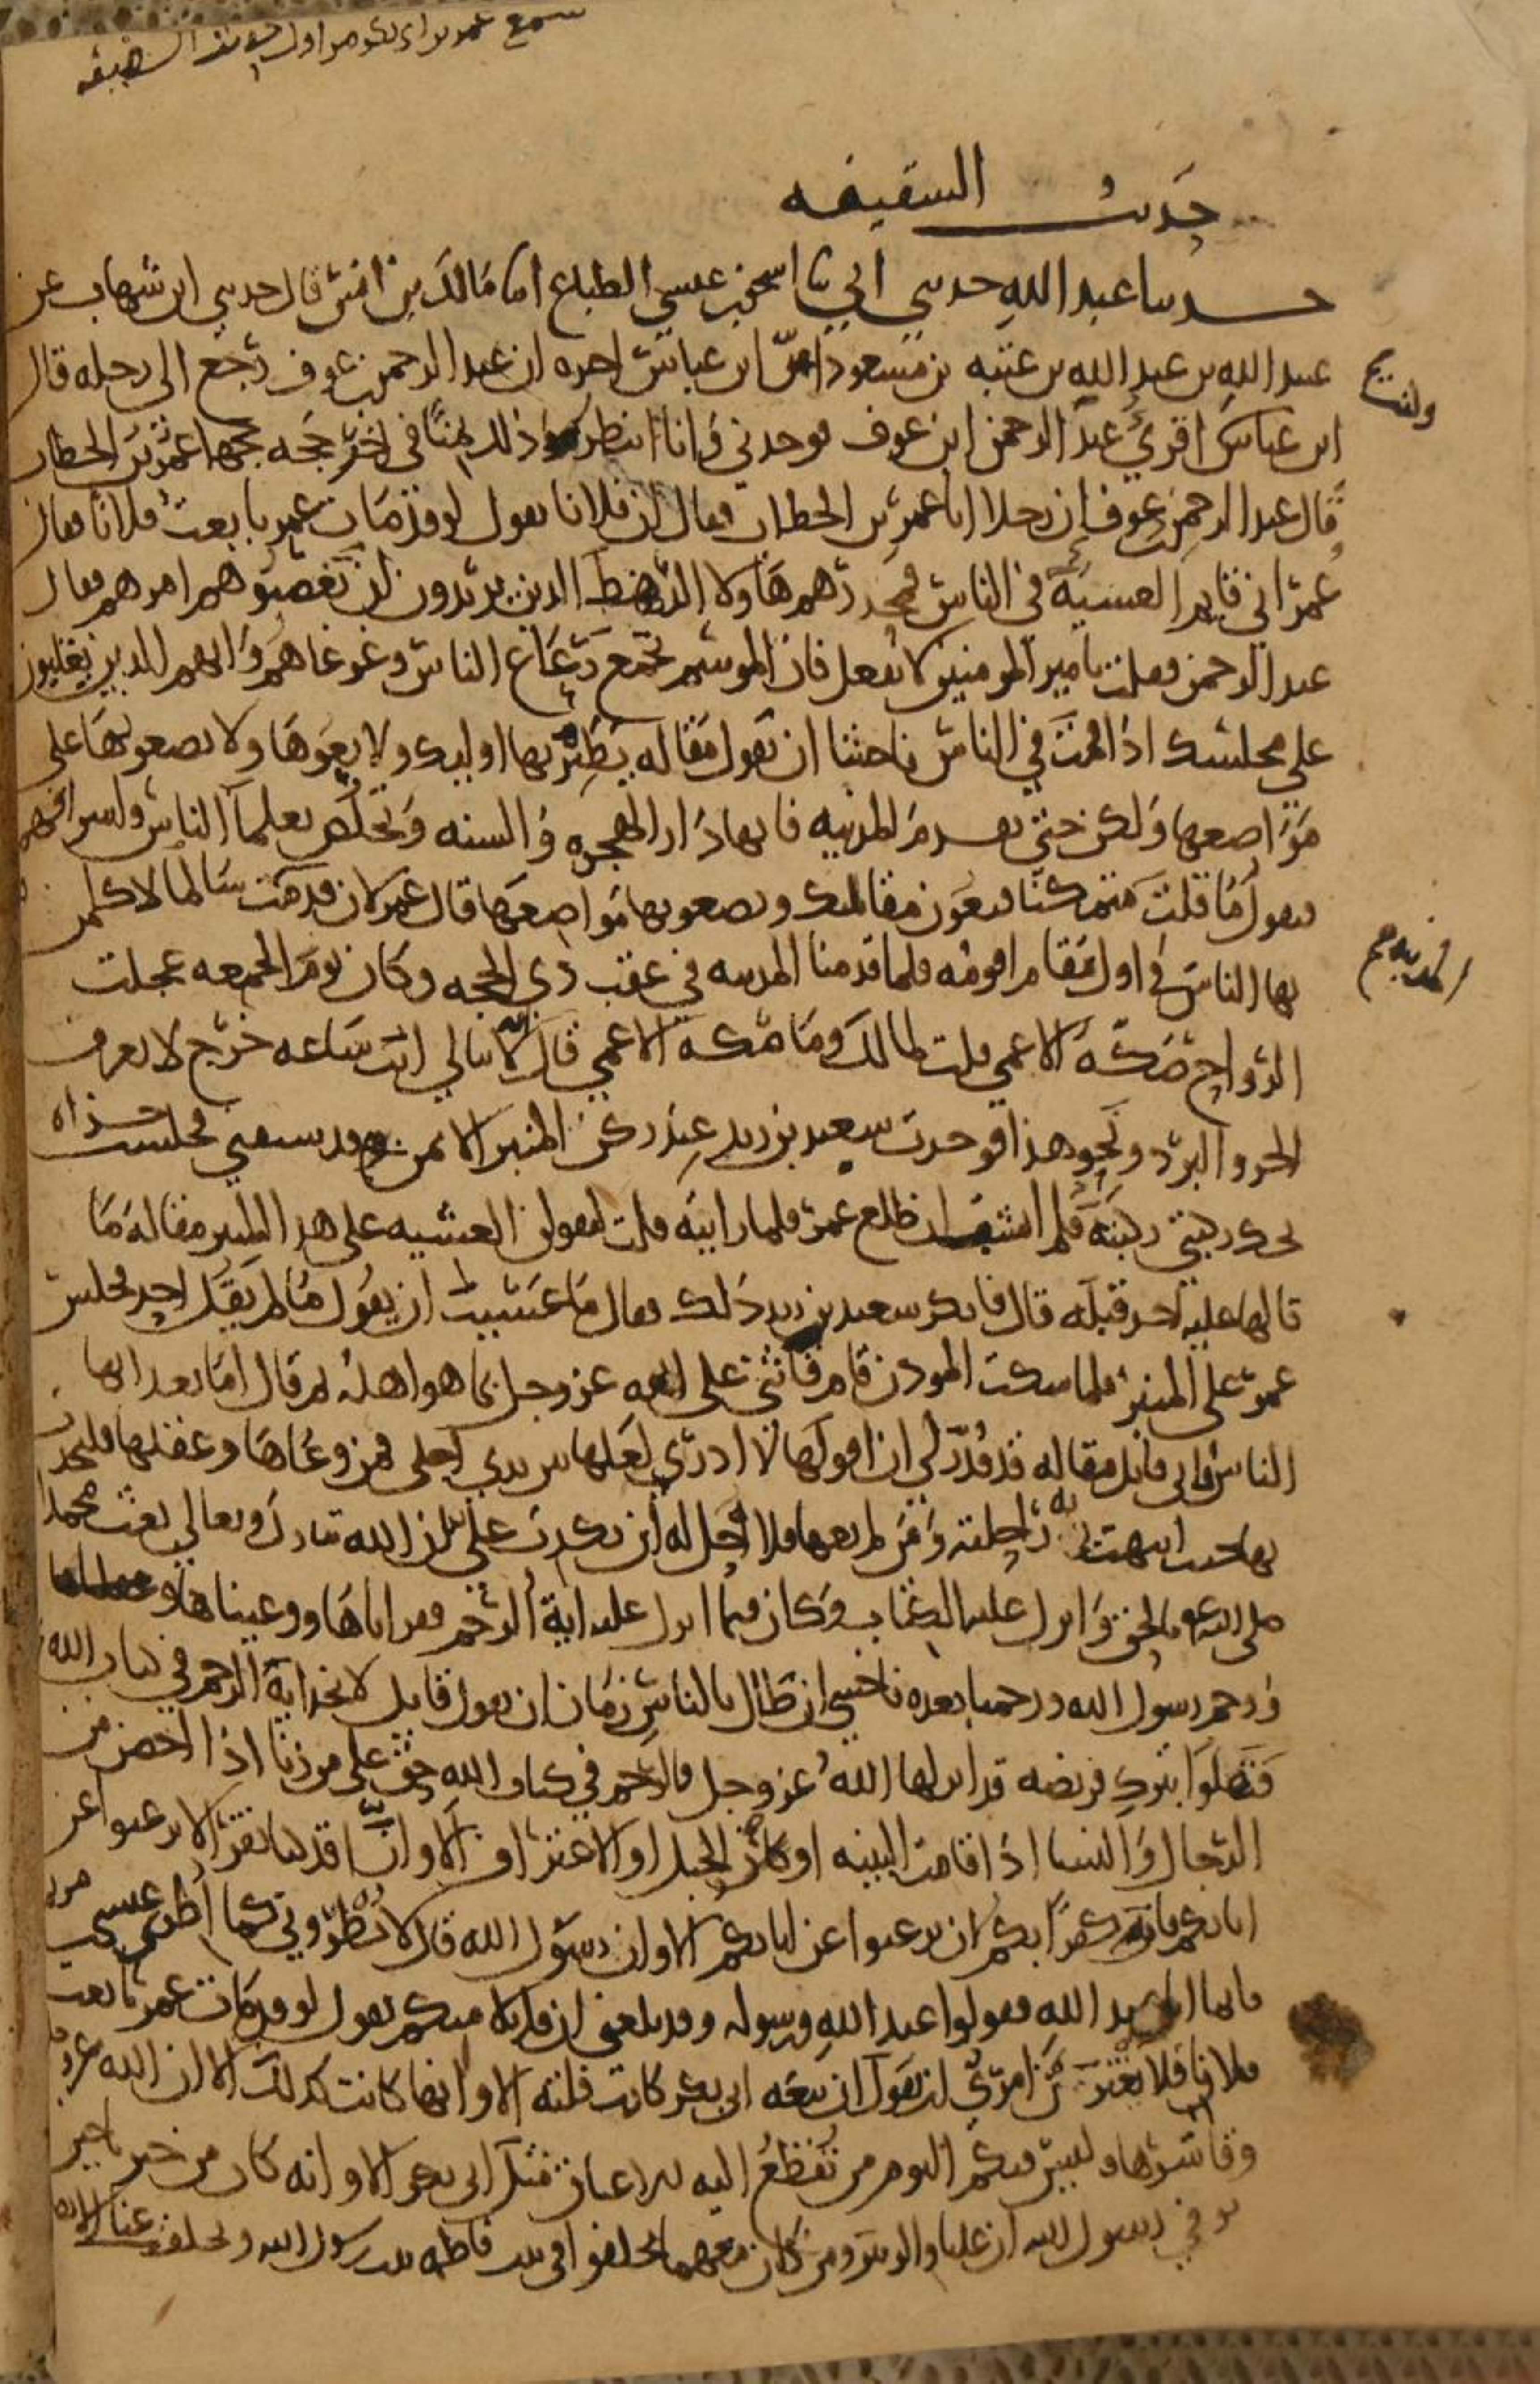 سمع عمر براى بكر من اول حديث السقيفه
حديث السقيفه
حدثنا عبد الله حدثني ابي ثنا اسحق بن عيسى الطباع انا مالك بن انس قال حدثني ابن شهاب عن
عبيد الله بن عبد الله بن عتبه بن مسعود ان ابن عباس اخبره ان عبد الرحمن بن عوف رجع الى رحله قال
ابن عباس اقرئ عبد الرحمن ابن عوف فوجدني وانا انتظره وذلك بمنًا في اخر حجه حجها عمر بن الخطاب
قال عبد الرحمن بن عوف ان رجلا اتا عمر بن الخطاب فقال ان فلانا يقول لو قد مات عمر بايعت فلانا فقال
عمر اني قايم العشيه في الناس فمحذرهم هاولا الرهط الدين يريدون ان يغصبوهم امرهم فقال
عبد الرحمن فقلت يامير المومنين لا تفعل فان الموسم يجمع رعاع الناس وغوغاهم وانهم الدين يغلبون
على مجلسك اذا قمت في الناس فاخشا ان تقول مقاله يطير بها اوليك ولا يعوها ولا يضعوها على
مواضعها ولكن حتى تقدم المدينه فانها دار الهجره والسنه وتخلص بعلما الناس واشرافهم
فتقول ما قلت متمكنا فيعون مقالتك ويضعونها مواضعها قال عمر لان قدمت سالما لاكلمن
بها الناس في اول مقام اقومه فلما قدمنا المدينه في عقب ذي الحجه وكان يوم الجمعه عجلت
الرواح صكه الاعمي قلت لمالك وما صكه الاعمي قال انه لا يبالي اي ساعه خرج لا يعرف
الحر والبرد ونحو هذا فوجدت سعيد بن زيد عند ركن المنبر الايمن قد سبقني فجلست حذاه
تحك ركبتي ركبته فلم انشب ان طلع عمر فلما رايته قلت ليقولن العشيه على هذا المنبر مقاله ما
قالها عليه احد قبله قال فانكر سعيد بن زيد ذلك فقال ما عسيت ان يقول ما لم يقل احد فجلس
عمر على المنبر فلما سكت المودن قام فاثنى على الله عز وجل بما هو اهله ثم قال اما بعد ايها
الناس فاني قايل مقاله قد قدر لي ان اقولها لا ادري لعلها بين يدي اجلي فمن وعاها وعقلها فليحدث
بها حيث انتهت به راحلته ومن لم يعها فلا احل له ان يكدب علي ان الله تبارك وتعالى بعث محمدا
صلى الله عليه بالحق وانزل عليه الكتاب وكان مما انزل عليه اية الرجم فقراناها ووعيناها
ورجم رسول الله ورجمنا بعده فاخشى ان طال بالناس زمان ان يقول قايل لا نجد اية الرجم في كتاب الله
فتضلوا بترك فريضه قد انزلها الله عز وجل فالرجم في كتاب الله حق على من زنا اذا احصن من
الرجال والنسا اذا قامت البينه او كان الحبل او الاعتراف الا وانا قد كنا نقرا لا ترغبوا عن
ابايكم فانه كفرا بكم ان ترغبوا عن ابايكم الا وان رسول الله قال لا تطروني كما اطري عيسى ابن مريم
فانما انا عبد الله فقولوا عبد الله ورسوله وقد بلغني ان قايلا منكم يقول لو قد مات عمر بايعت
فلانا فلا يغترن امرئ ان يقول ان بيعه ابي بكر كانت فلته الا وانها كانت كذلك الا ان الله عز وجل
وقا شرها وليس فيكم اليوم من تقطع اليه الاعناق مثل ابي بكر الا وانه كان من خبرنا حين
توفي رسول الله ان عليا والزبير ومن كان معهما تخلفوا في بيت فاطمه بنت رسول الله وتخلفت عنا الانصار
المدينه صح